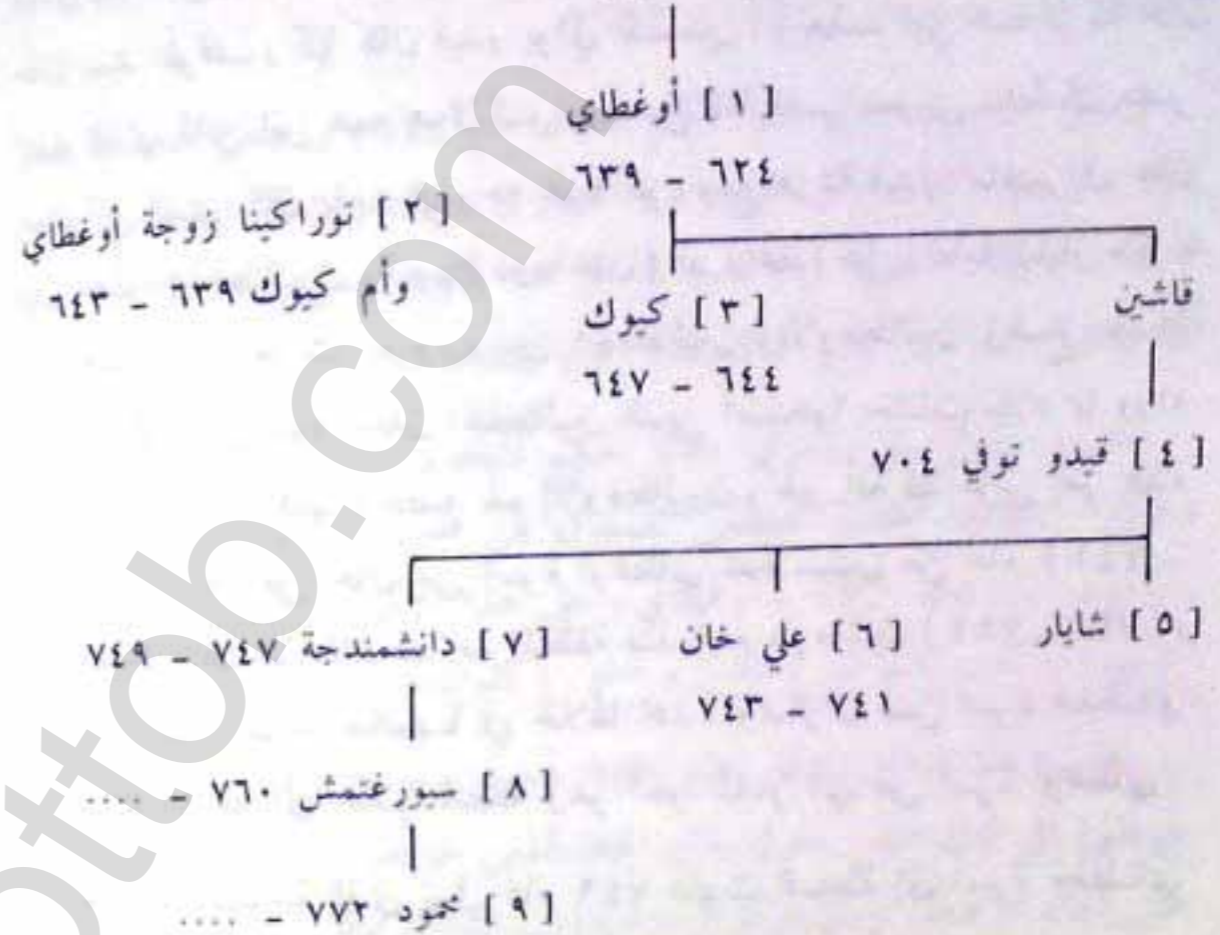 [ ١ ] أوغطاي
٦٢٤ - ٦٣٩
[ ٢ ] توراكينا زوجة أوغطاي
وأم كيوك ٦٣٩ - ٦٤٣
[ ٣ ] كيوك
٦٤٤ - ٦٤٧
قاشين
[ ٤ ] قيدو توفي ٧٠٤
[ ٥ ] شايار
[ ٦ ] علي خان
٧٤١ - ٧٤٣
[ ٧ ] دانشمندجة ٧٤٧ - ٧٤٩
[ ٨ ] سيورغتمش ٧٦٠ - ....
[ ٩ ] محمود ٧٧٢ - ....
ottob.com